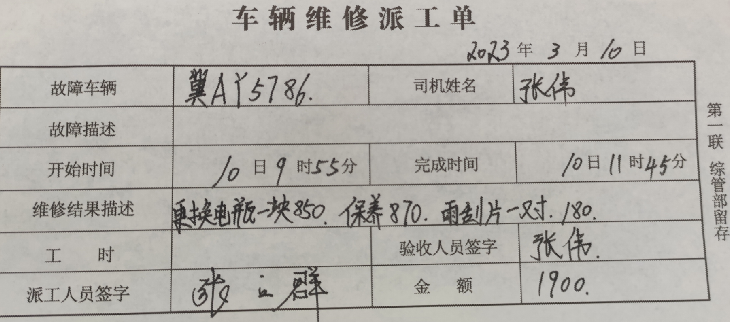 车辆维修派工单
2023年3月10日
故障车辆 翼AY5786. 司机姓名 张伟
故障描述
开始时间 10日9时55分 完成时间 10日11时45分
维修结果描述 更换电瓶一块850. 保养870. 雨刮片一对. 180.
工时 验收人员签字 张伟.
派工人员签字 群 金额 1900.
第一联 综管部留存